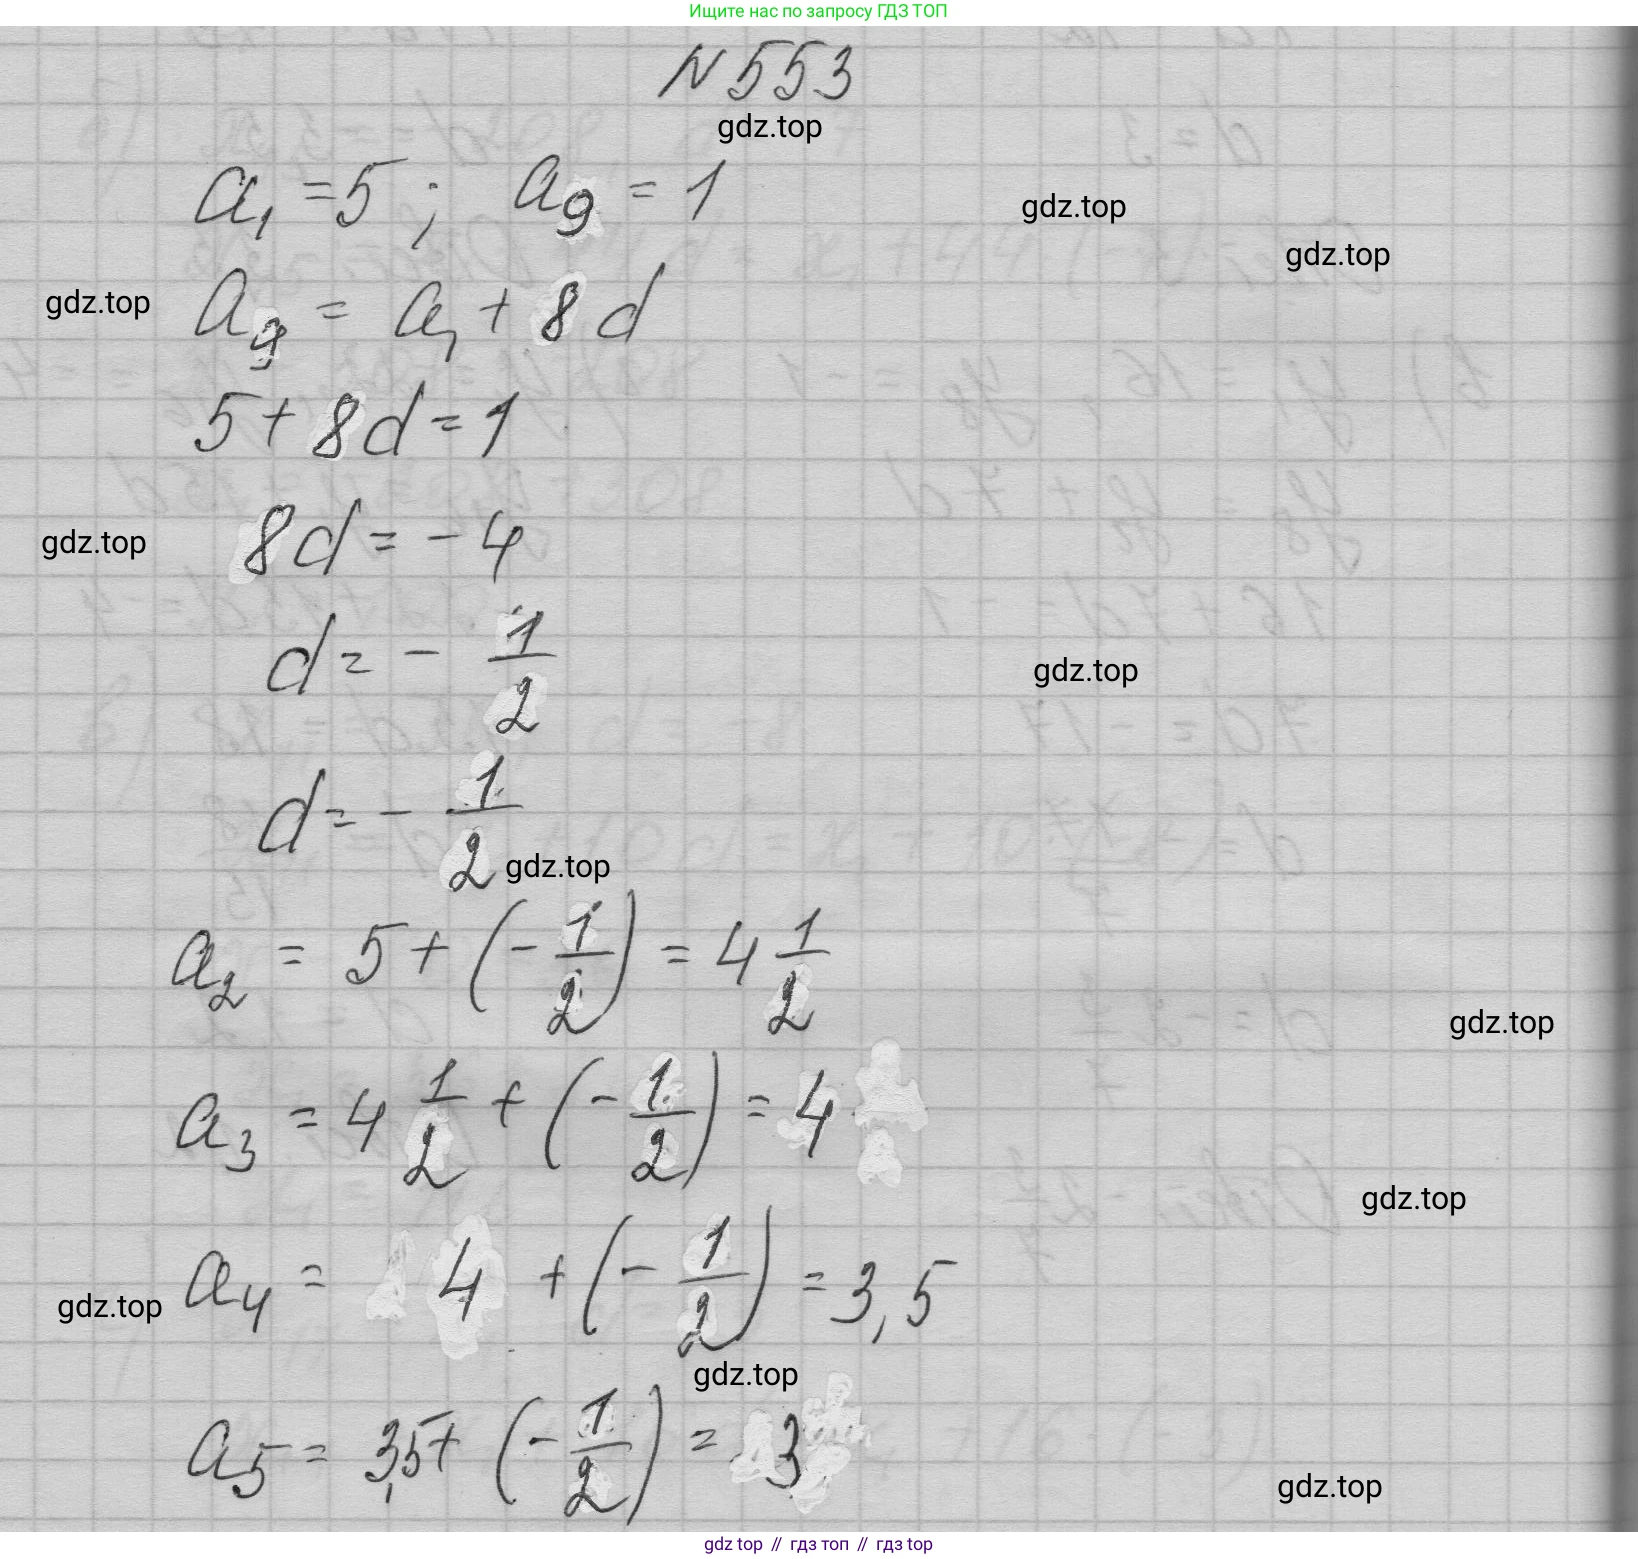 Ищите нас по запросу ГДЗ ТОП
N 553
gdz.top
a₁ = 5 ; a₉ = 1
gdz.top
gdz.top
gdz.top
a₉ = a₁ + 8d
5 + 8d = 1
gdz.top
8d = - 4
d = - 1/2
gdz.top
d = - 1/2
gdz.top
a₂ = 5 + (- 1/2) = 4 1/2
gdz.top
a₃ = 4 1/2 + (- 1/2) = 4
gdz.top
a₄ = 4 + (- 1/2) = 3,5
gdz.top
gdz.top
a₅ = 3,5 + (- 1/2) = 3
gdz.top
gdz top // гдз топ // gdz top